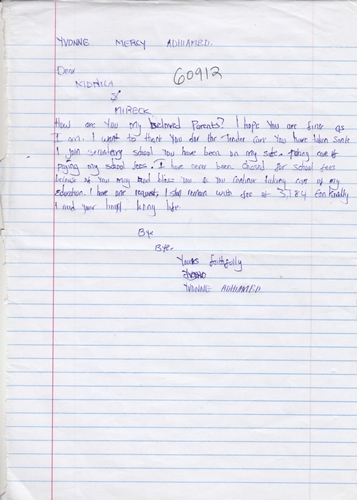 YVONNE MERCY ADHIAMBO.
Dear 60912
MONICA
&
MIRECK
How are You my Beloved Parents? I hope You are fine as
I am. I want to thank You for the tender care You have taken since
I join secondary school You have been on my side taking care of
paying my school fees. I have never been chased for school fees
because of You may God bless You as You continue taking care of my
education. I have one request, I still remain with fee of 3,784
I need your help. long life
Bye
Bye.
Yours faithfully
YVONNE ADHIAMBO.